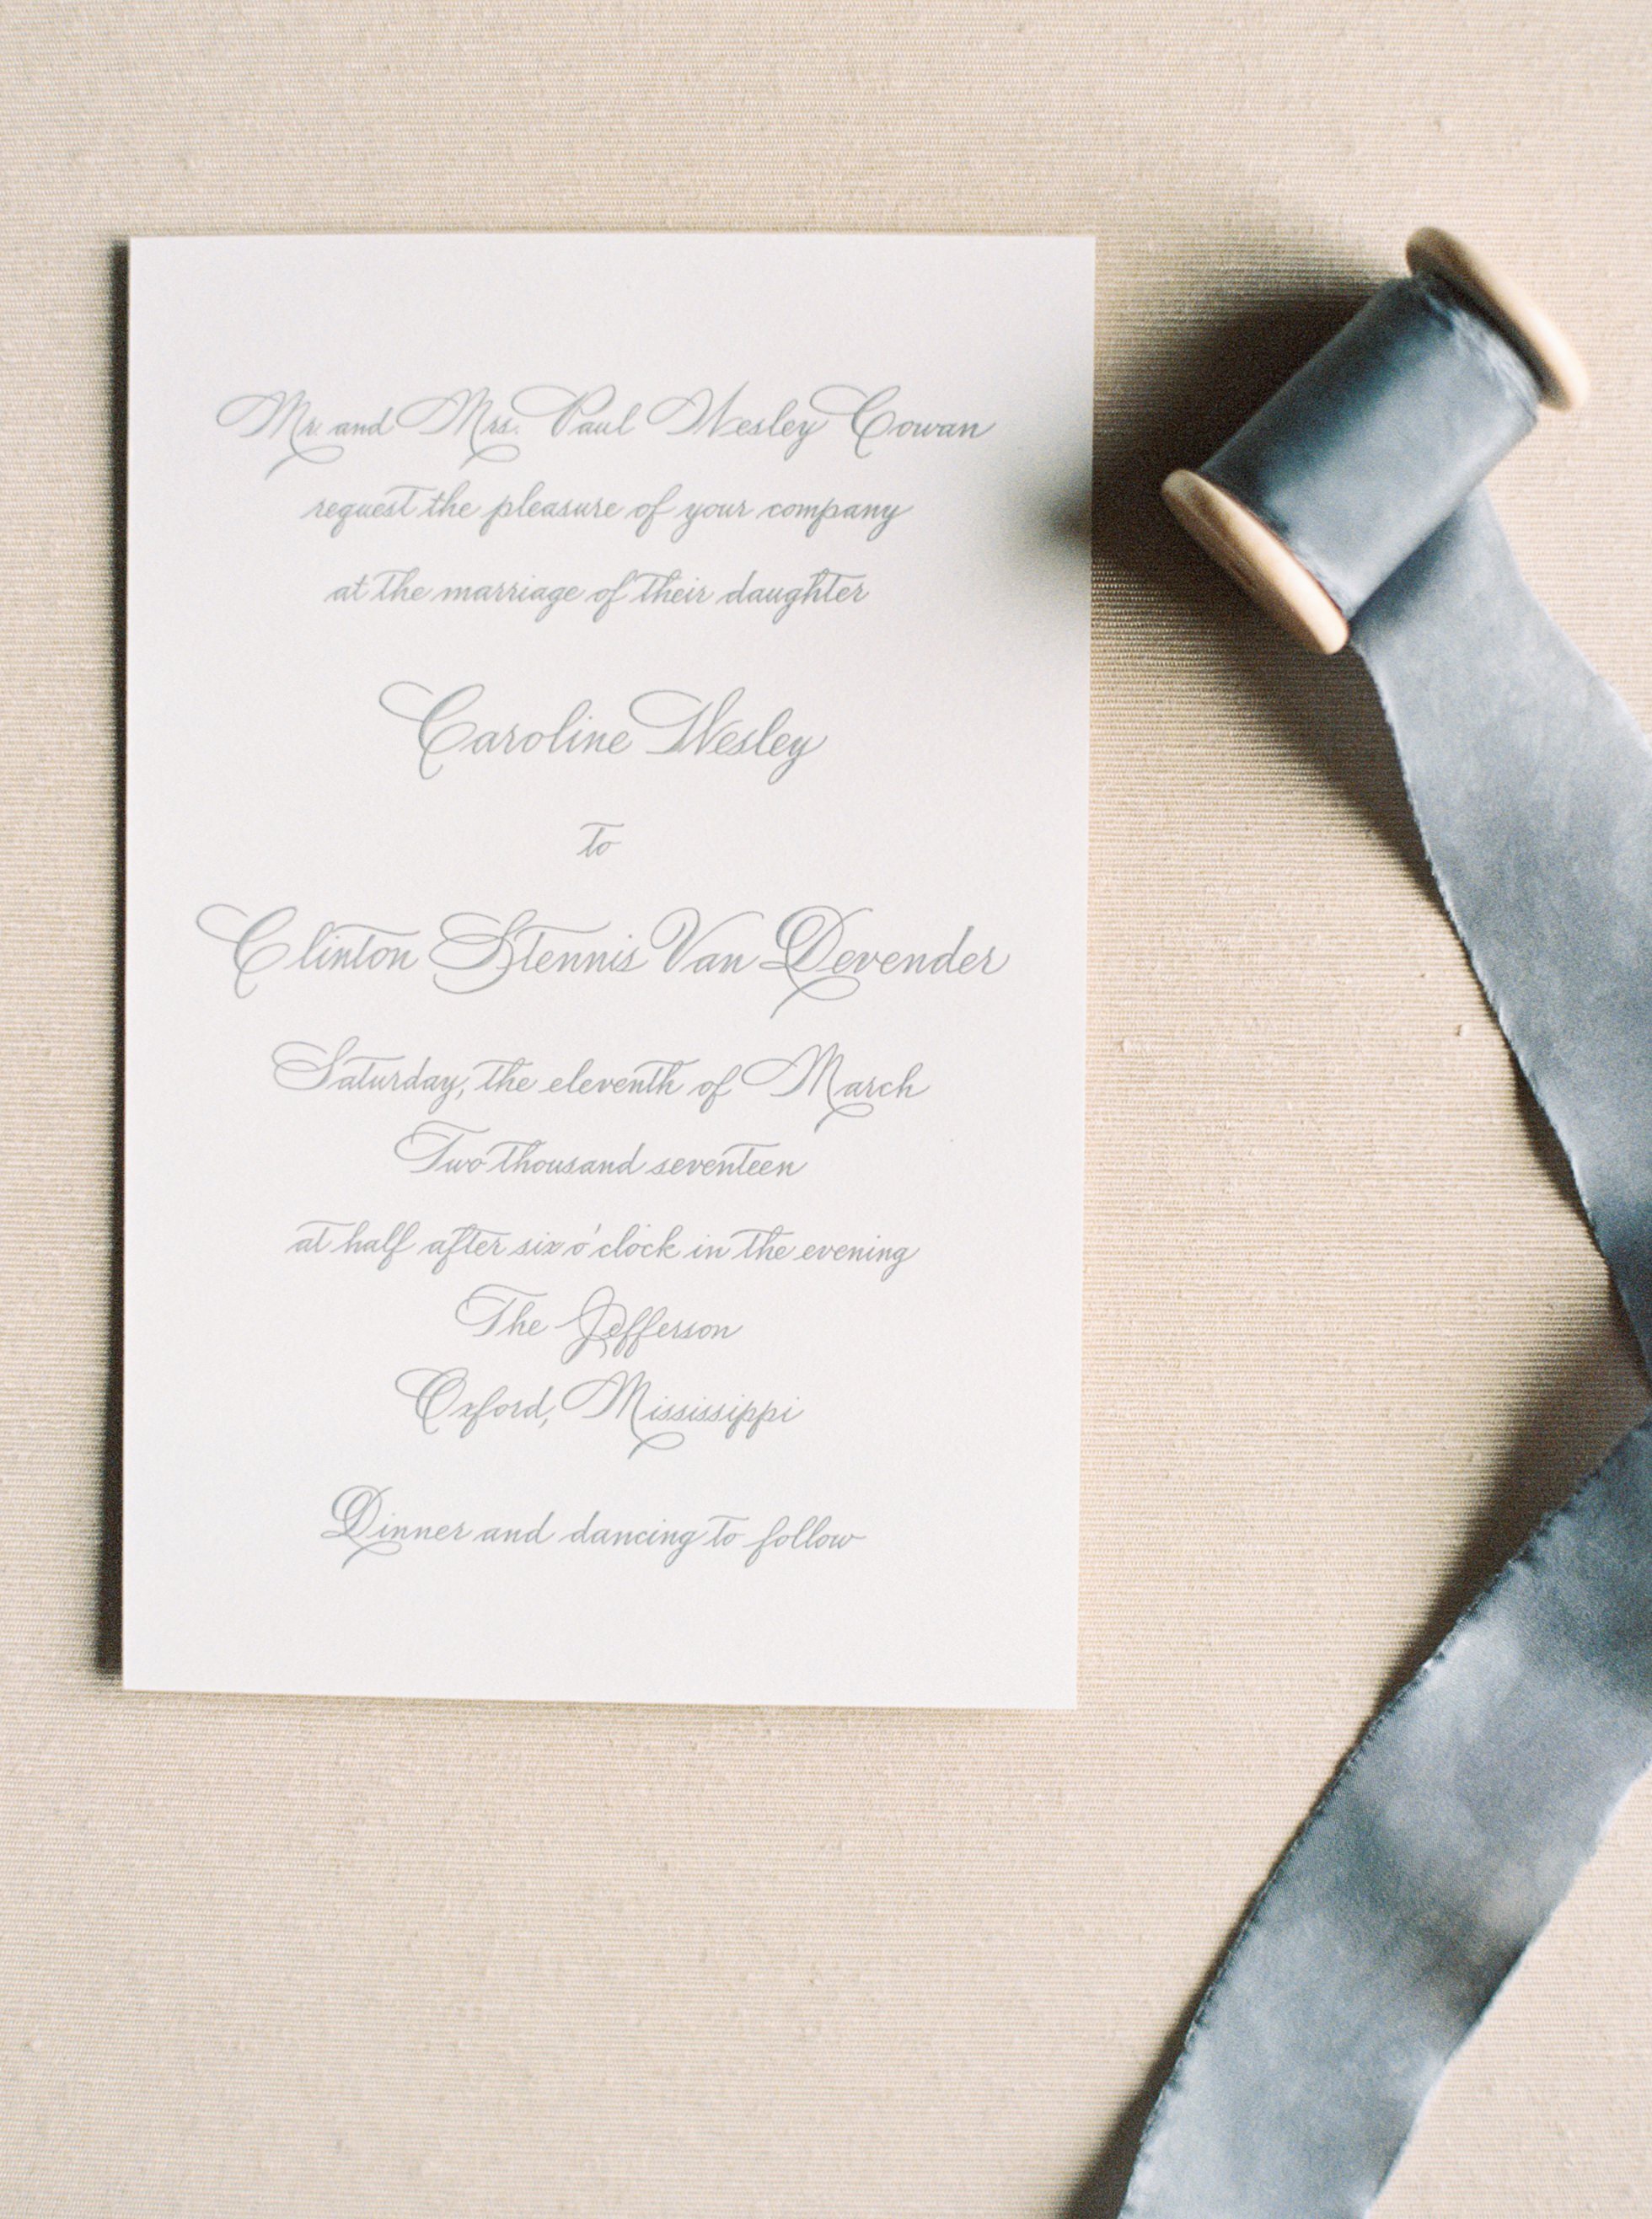 Mr. and Mrs. Paul Wesley Cowan
request the pleasure of your company
at the marriage of their daughter
Caroline Wesley
to
Clinton Stennis Van Devender
Saturday, the eleventh of March
Two thousand seventeen
at half after six o'clock in the evening
The Jefferson
Oxford, Mississippi
Dinner and dancing to follow